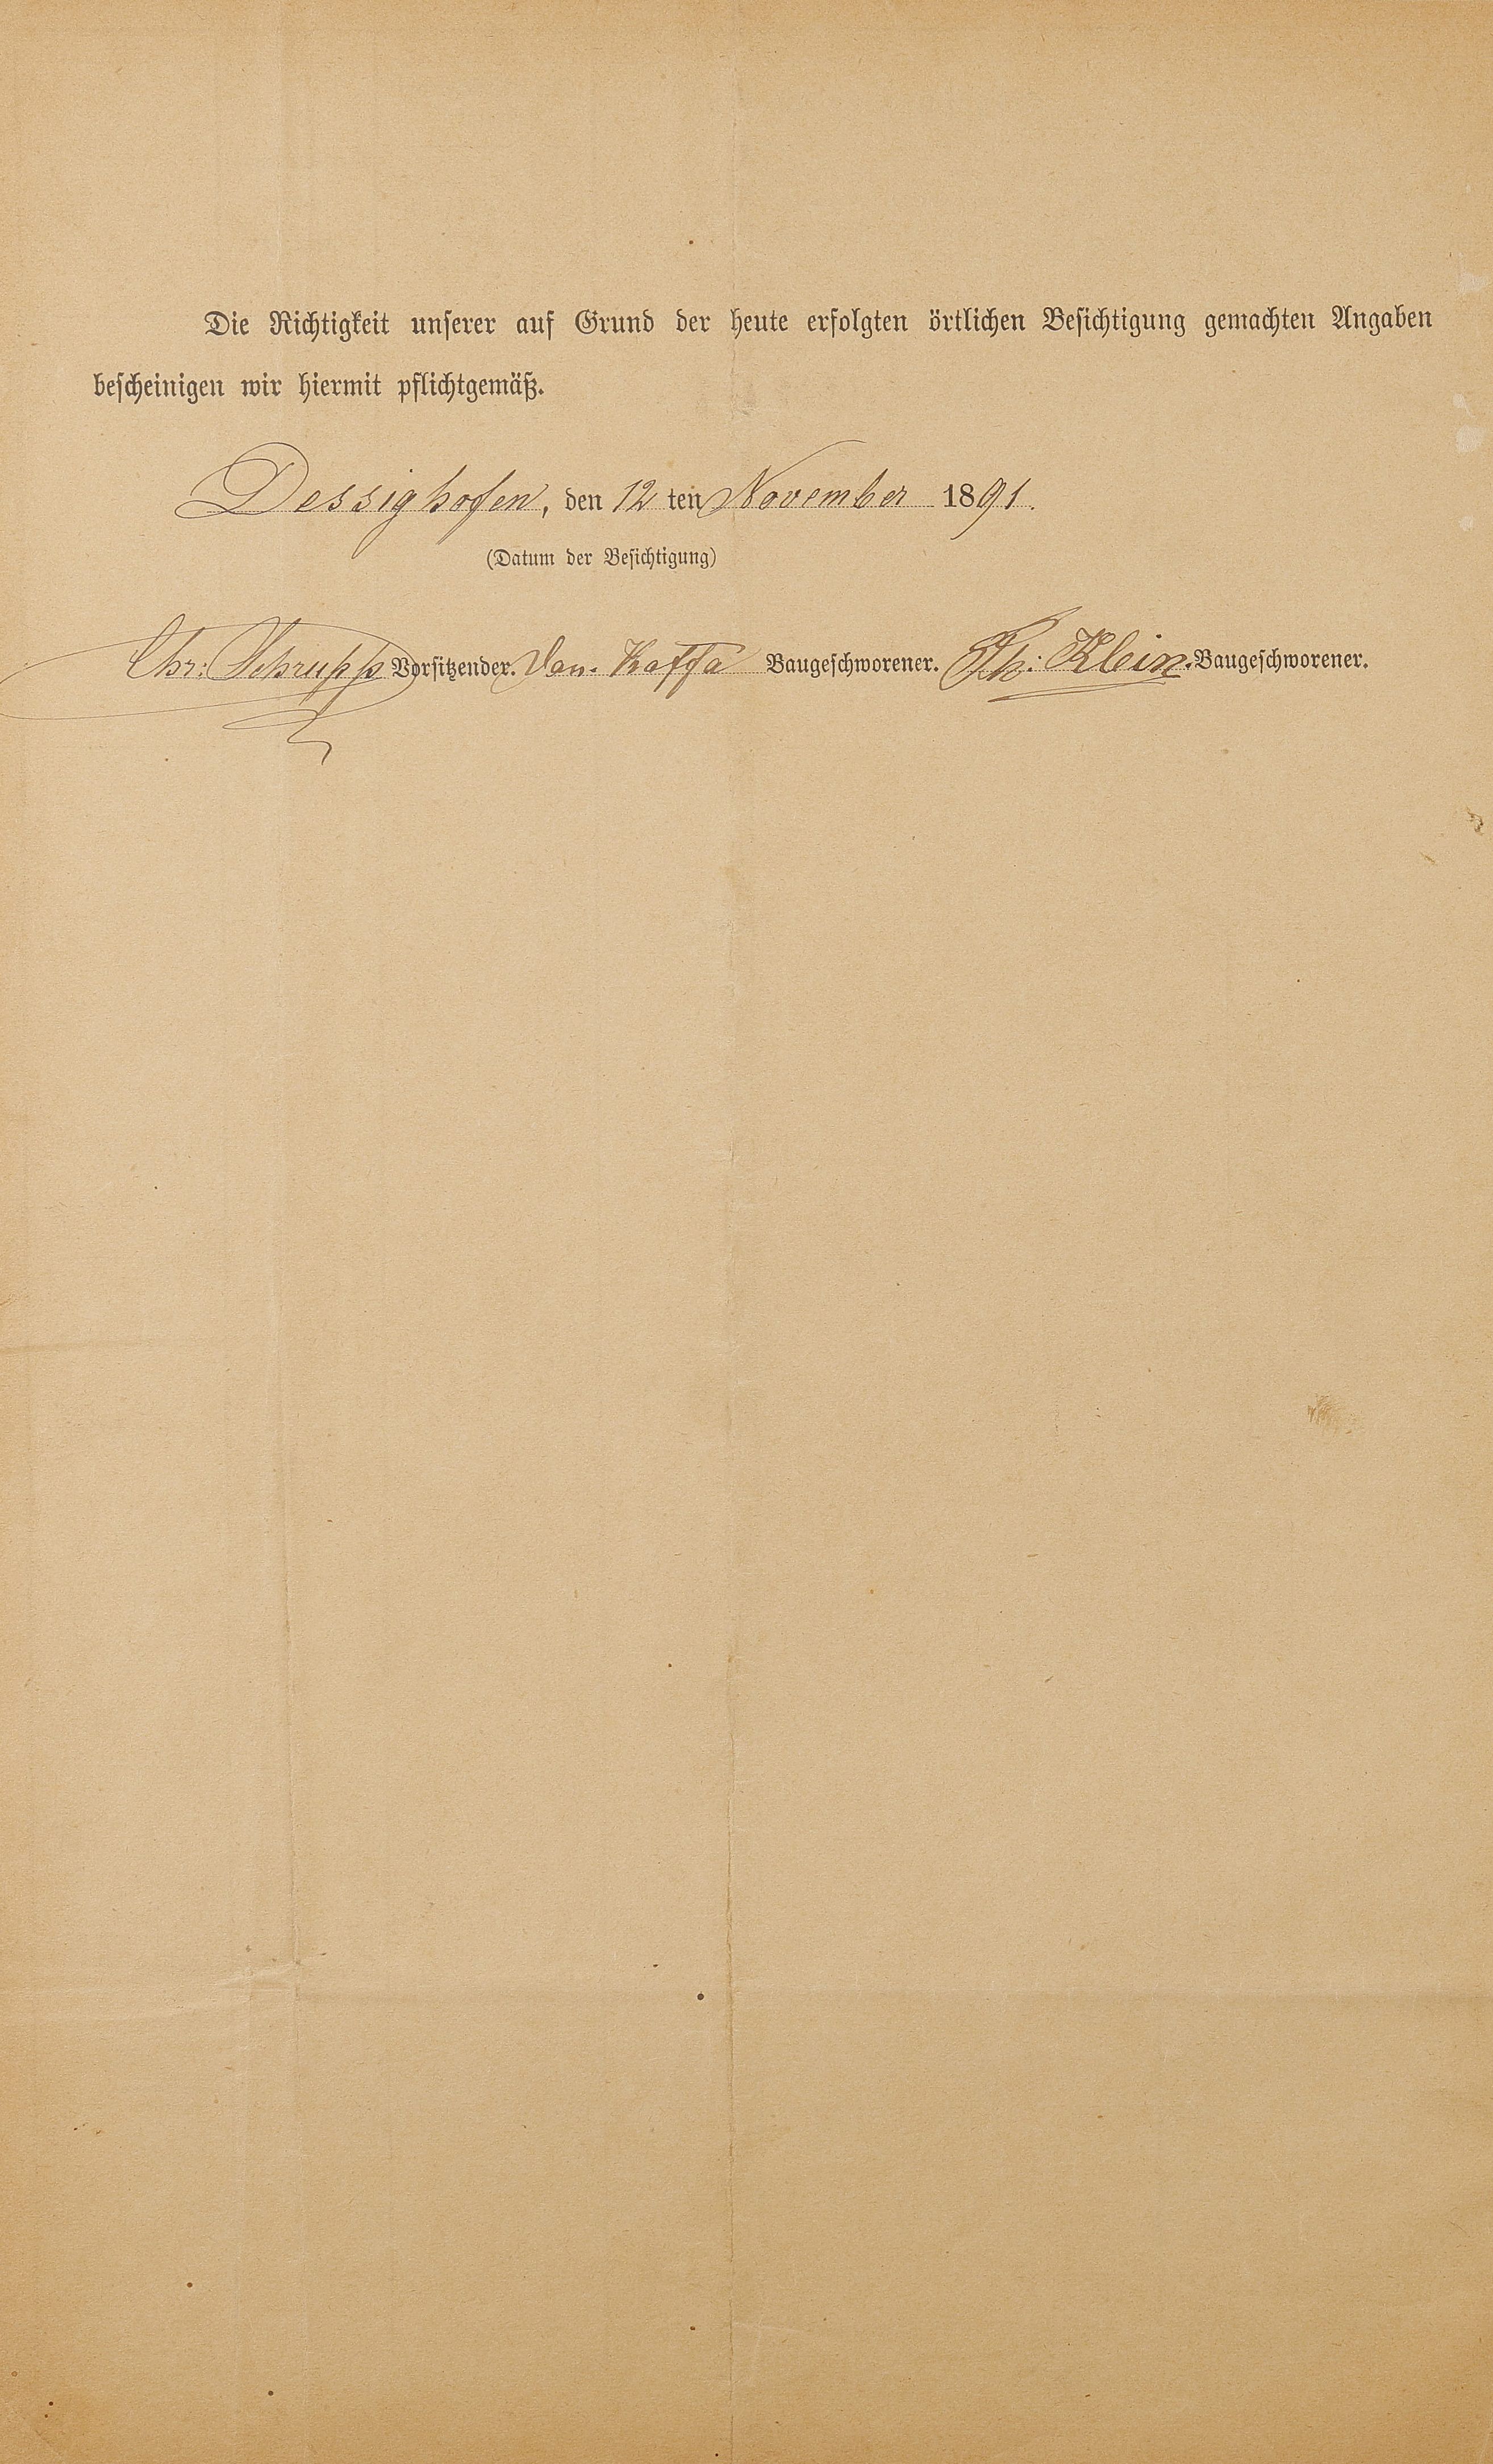 Die Richtigkeit unserer auf Grund der heute erfolgten örtlichen Besichtigung gemachten Angaben
bescheinigen wir hiermit pflichtgemäß.
Dessighofen, den 12 ten November 1891.
(Datum der Besichtigung)
Chr: Schrupp Vorsitzender. Dan. Baugeschworener. Ph: Klein. Baugeschworener.